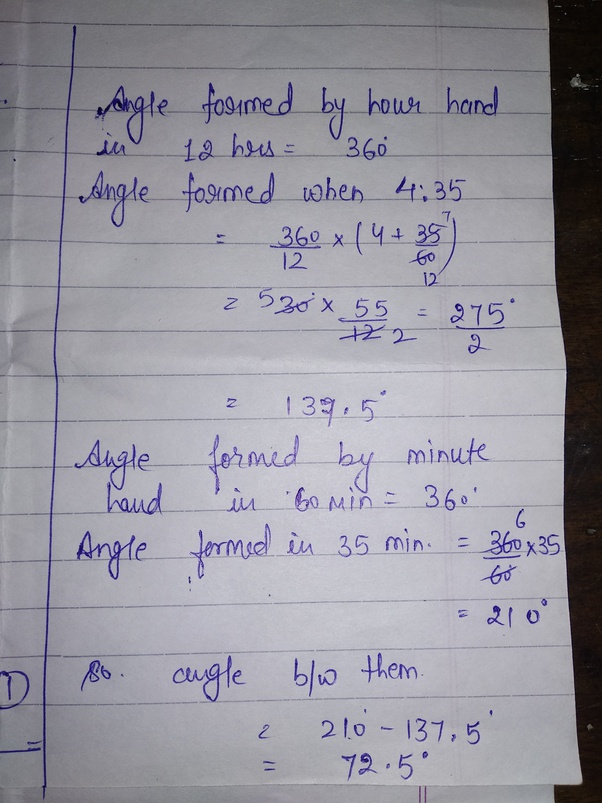 Angle formed by hour hand
in 12 hrs = 360°
Angle formed when 4:35
= 360/12 × (4 + 35/60) 7 12
= 5 30° × 55/12 2 = 275°/2
= 137.5°
Angle formed by minute
hand in 60 min = 360°
Angle formed in 35 min. = 360/60 × 35 6
= 210°
1 So. angle b/w them.
= 210° - 137.5°
= 72.5°